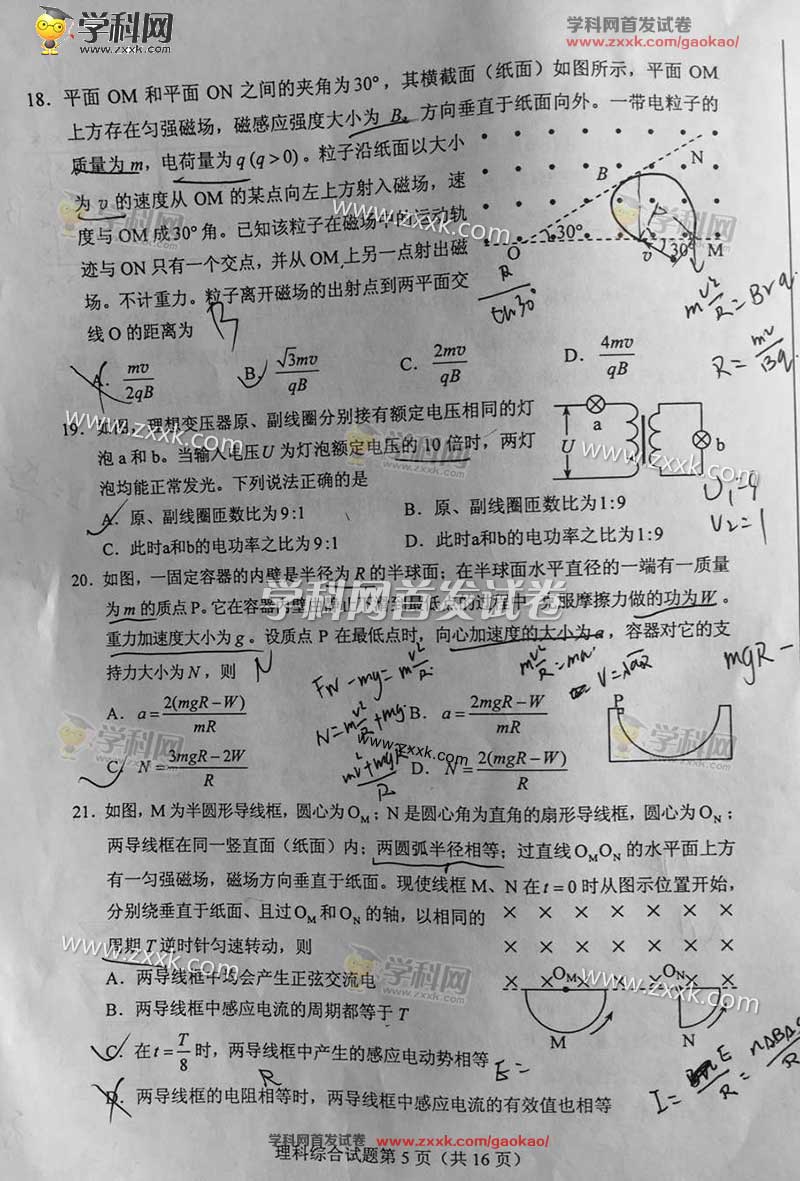 学科网
www.zxxk.com
学科网首发试卷
www.zxxk.com/gaokao/
18. 平面 OM 和平面 ON 之间的夹角为30°，其横截面（纸面）如图所示，平面 OM
上方存在匀强磁场，磁感应强度大小为 B，方向垂直于纸面向外。一带电粒子的
质量为 m，电荷量为 q (q > 0)。粒子沿纸面以大小
为 v 的速度从 OM 的某点向左上方射入磁场，速
度与 OM 成30°角。已知该粒子在磁场中的运动轨
迹与 ON 只有一个交点，并从 OM 上另一点射出磁
场。不计重力。粒子离开磁场的出射点到两平面交
线 O 的距离为
B
N
O
30°
v
30°
M
B
R/th30°
m v²/R = Bvq
R = mv/Bq
A. mv/2qB
B. √3mv/qB
C. 2mv/qB
D. 4mv/qB
19. 如图，理想变压器原、副线圈分别接有额定电压相同的灯
泡 a 和 b。当输入电压U 为灯泡额定电压的 10 倍时，两灯
泡均能正常发光。下列说法正确的是
A. 原、副线圈匝数比为9:1
B. 原、副线圈匝数比为1:9
C. 此时a和b的电功率之比为9:1
D. 此时a和b的电功率之比为1:9
a
U
b
U₁=9
V₂=1
20. 如图，一固定容器的内壁是半径为 R 的半球面；在半球面水平直径的一端有一质量
为 m 的质点 P。它在容器内壁由静止下滑到最低点的过程中，克服摩擦力做的功为 W。
重力加速度大小为 g。设质点 P 在最低点时，向心加速度的大小为 a，容器对它的支
持力大小为 N，则
N
FN - mg = m v²/R
N = m v²/R + mg
mgR -
A. a = 2(mgR-W)/mR
B. a = 2mgR-W/mR
C. N = 3mgR-2W/R
D. N = 2(mgR-W)/R
P
21. 如图，M 为半圆形导线框，圆心为 O_M；N 是圆心角为直角的扇形导线框，圆心为 O_N；
两导线框在同一竖直面（纸面）内；两圆弧半径相等；过直线 O_M O_N 的水平面上方
有一匀强磁场，磁场方向垂直于纸面。现使线框 M、N 在 t = 0 时从图示位置开始，
分别绕垂直于纸面、且过 O_M 和 O_N 的轴，以相同的
周期 T 逆时针匀速转动，则
A. 两导线框中均会产生正弦交流电
B. 两导线框中感应电流的周期都等于 T
C. 在 t = T/8 时，两导线框中产生的感应电动势相等
D. 两导线框的电阻相等时，两导线框中感应电流的有效值也相等
O_M
O_N
M
N
R
E=
学科网首发试卷
www.zxxk.com/gaokao/
理科综合试题第 5 页（共 16 页）